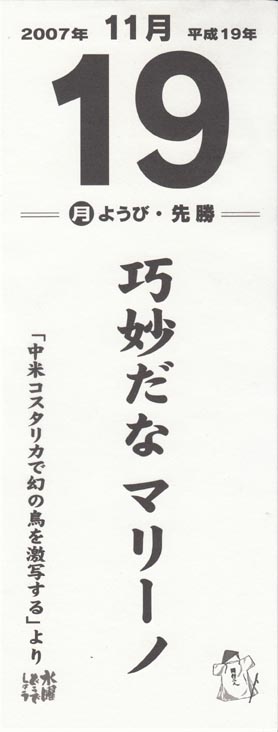 2007年 11月 平成19年
19
月ようび・先勝
巧妙だな マリーノ
「中米コスタリカで幻の鳥を激写する」より
水曜
どうで
しょう